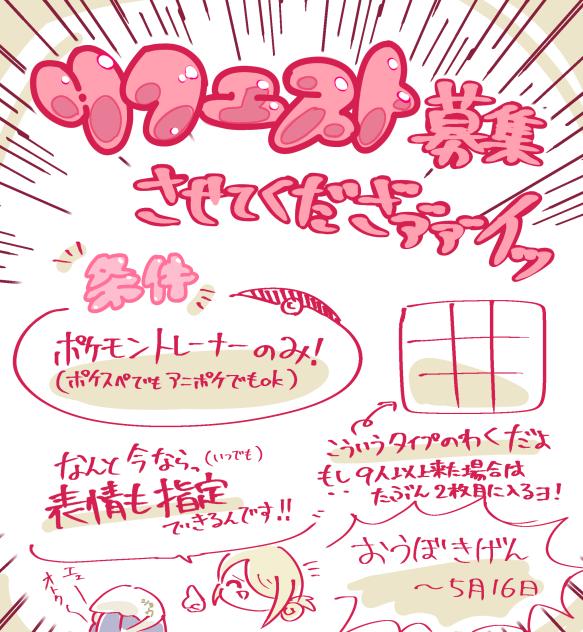 リクエスト募集
させてくださァァァイッ
条件
ポケモントレーナーのみ!
(ポケスペでもアニポケでもok)
なんと今なら、(いつでも)
表情も指定
できるんです!!
こういうタイプのわくだよ
もし9人以上来た場合は
たぶん2枚目に入るヨ!
おうぼきげん
〜5月16日
エェ
オトク